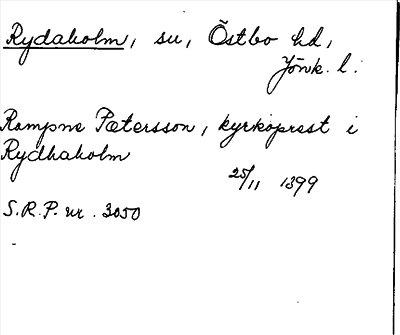 Rydaholm, sn, Östbo hd,
Jönk. l.
Rampne Pætersson, kyrkoprest i
Rydhaholm
25/11 1399
S.R.P. nr. 3050